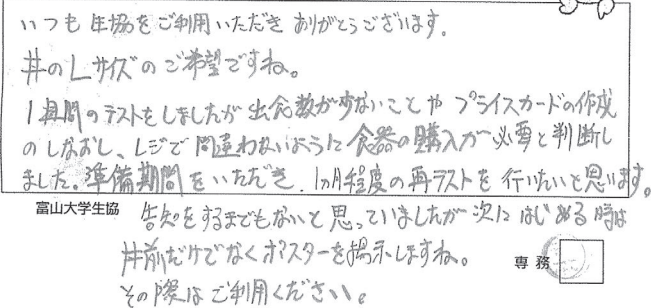 いつも生協をご利用いただきありがとうございます。
丼のLサイズのご希望ですね。
1週間のテストをしましたが出食数が少ないことやプライスカードの作成
のしなおし、レジで間違わないように食器の購入が必要と判断し
ました。準備期間をいただき、1ヵ月程度の再テストを行いたいと思います。
富山大学生協
告知をするまでもないと思っていましたが次にはじめる時は
丼前だけでなくポスターを掲示しますね。
専務
その際はご利用ください。